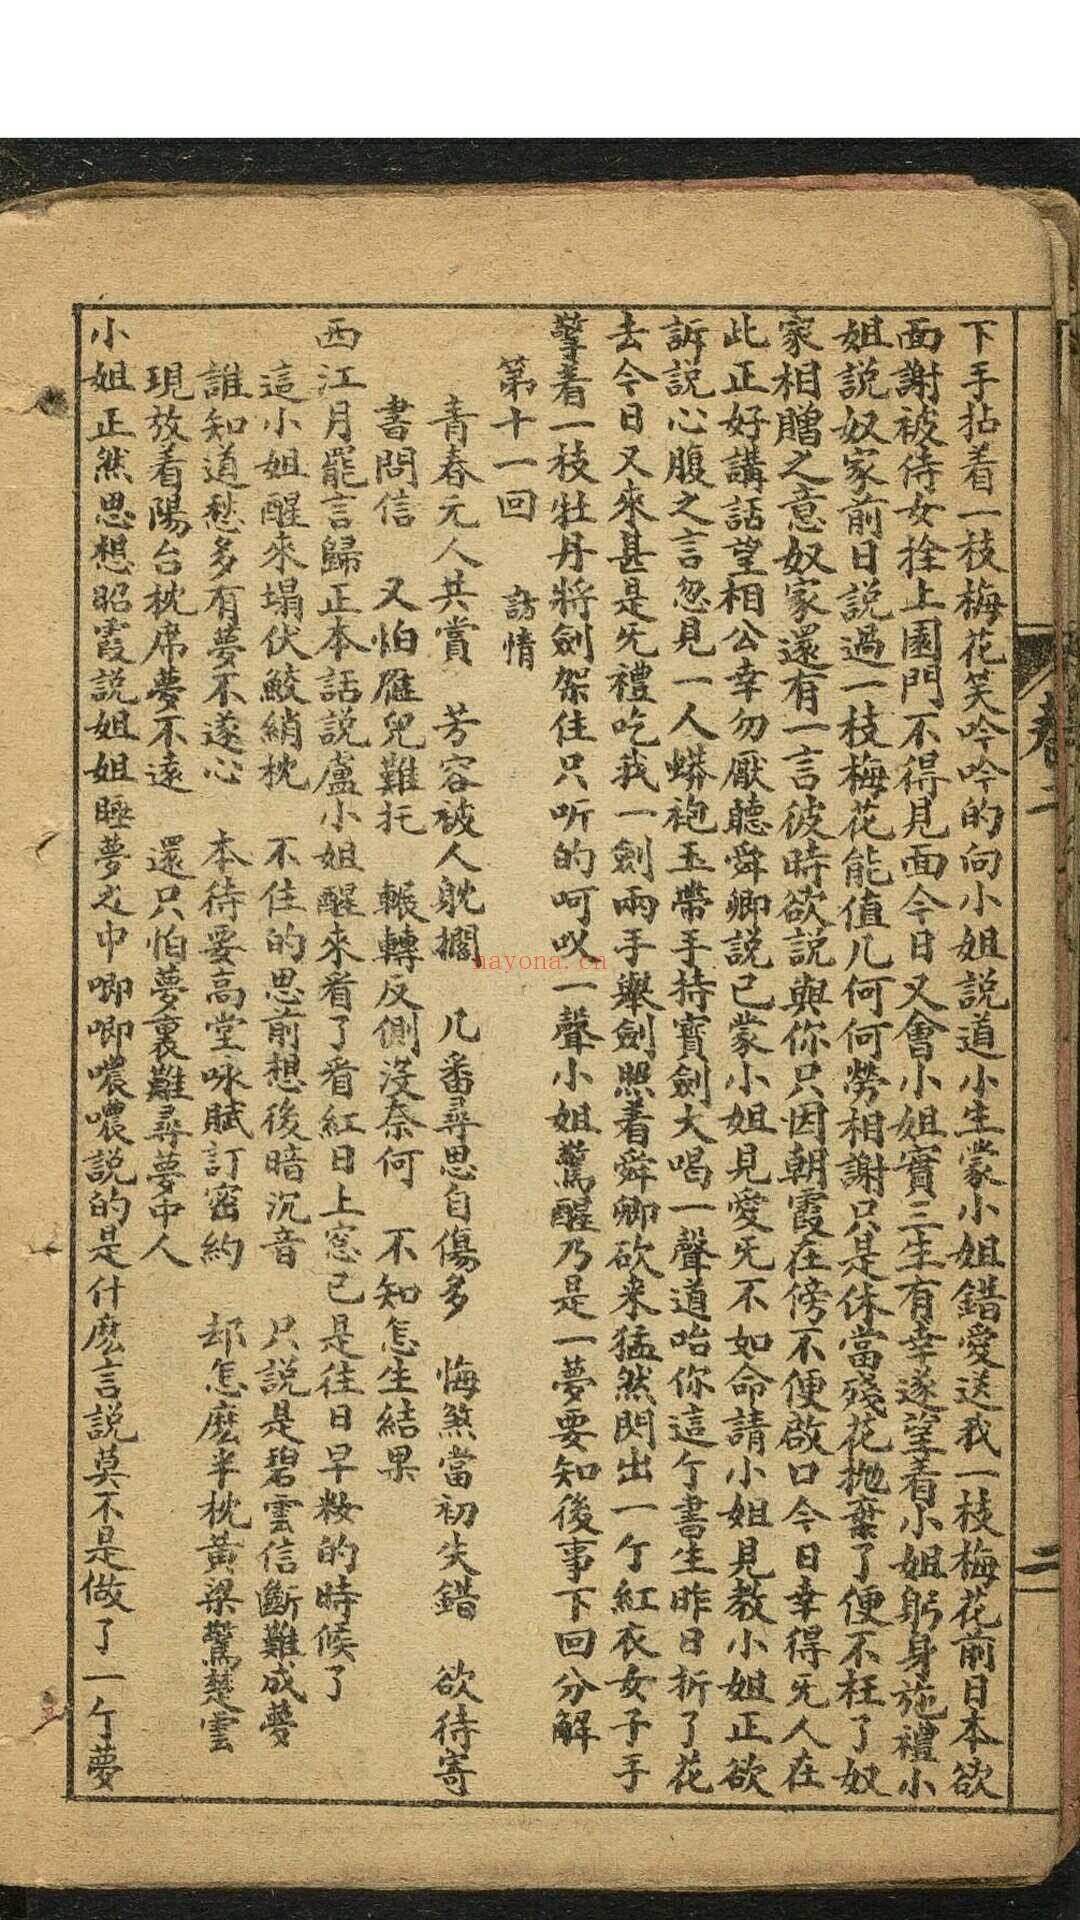 卷二
二
下手拈着一枝梅花笑吟吟的向小姐説道小生蒙小姐錯愛送我一枝梅花前日本欲
面謝被侍女拴上園門不得見面今日又會小姐實三生有幸遂望着小姐躬身施禮小
姐説奴家前日説過一枝梅花能值几何何勞相謝只是休當殘花抛棄了便不枉了奴
家相贈之意奴家還有一言彼時欲説與你只因朝霞在傍不便啟口今日幸得旡人在
此正好講話望相公幸勿厭聽舜卿説已蒙小姐見愛旡不如命請小姐見教小姐正欲
訴説心腹之言忽見一人蟒袍玉帶手持寳劍大喝一聲道咍你這亇書生昨日折了花
去今日又來甚是旡禮吃我一劍兩手舉劍照着舜卿砍来猛然閃出一亇紅衣女子手
擎着一枝牡丹將劍架住只听的呵㕥一聲小姐驚醒乃是一夢要知後事下回分解
第十一回 訪情
青春元人共賞 芳容被人躭擱 几番尋思自傷多 悔煞當初失錯 欲待寄
書問信 又怕雁兒難托 輾轉反側沒奈何 不知怎生結果
西江月罷言歸正本話説盧小姐醒來看了看紅日上窓已是往日早粧的時候了
這小姐醒來塌伏鮫綃枕 不住的思前想後暗沉音 只説是碧雲信斷難成夢
誰知道愁多有夢不遂心 本待要高堂咏賦訂密約 却怎麽半枕黃梁驚楚雲
現放着陽台枕席夢不遠 還只怕夢裏難尋夢中人
小姐正然思想昭霞説姐姐睡夢之中唧唧噥噥説的是什麽言説莫不是做了一亇夢
nayona.cn